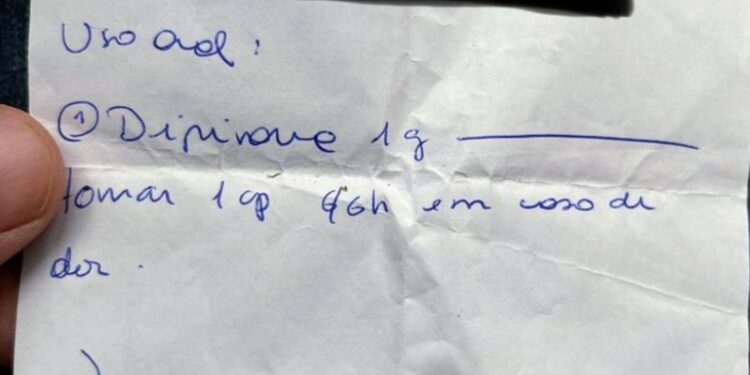 Uso oral:
① Dipirona 1g
tomar 1 cp 6/6h em caso de
dor.